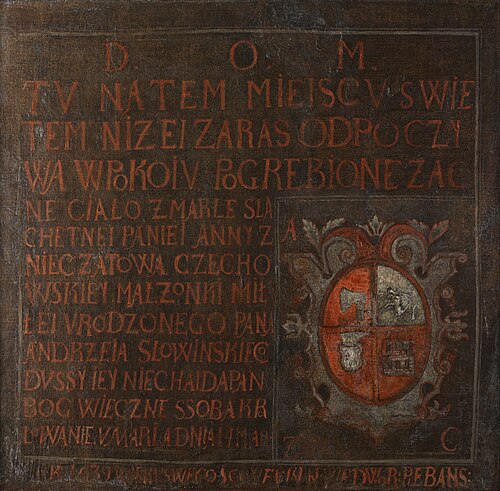 D. O. M.
TV NATEM MIEISCV SWIE
TEM NIZEI ZARAS ODPOCZY
WA WPOKOIV POGREBIONE ZAC
NE CIALO ZMARLE SLA
CHETNEI PANIEI ANNY Z
A
NIEGZATOWA CZECHO
WSKIEY MALZONKI MIL
LEI VRODZONEGO PANA
ANDRZEIA SLOWINSKIEGO
DVSSY IEY NIECHAI DA PAN
BOG WIECZNE SSOBA KR
LOWANIE VMARLA DNIA
C